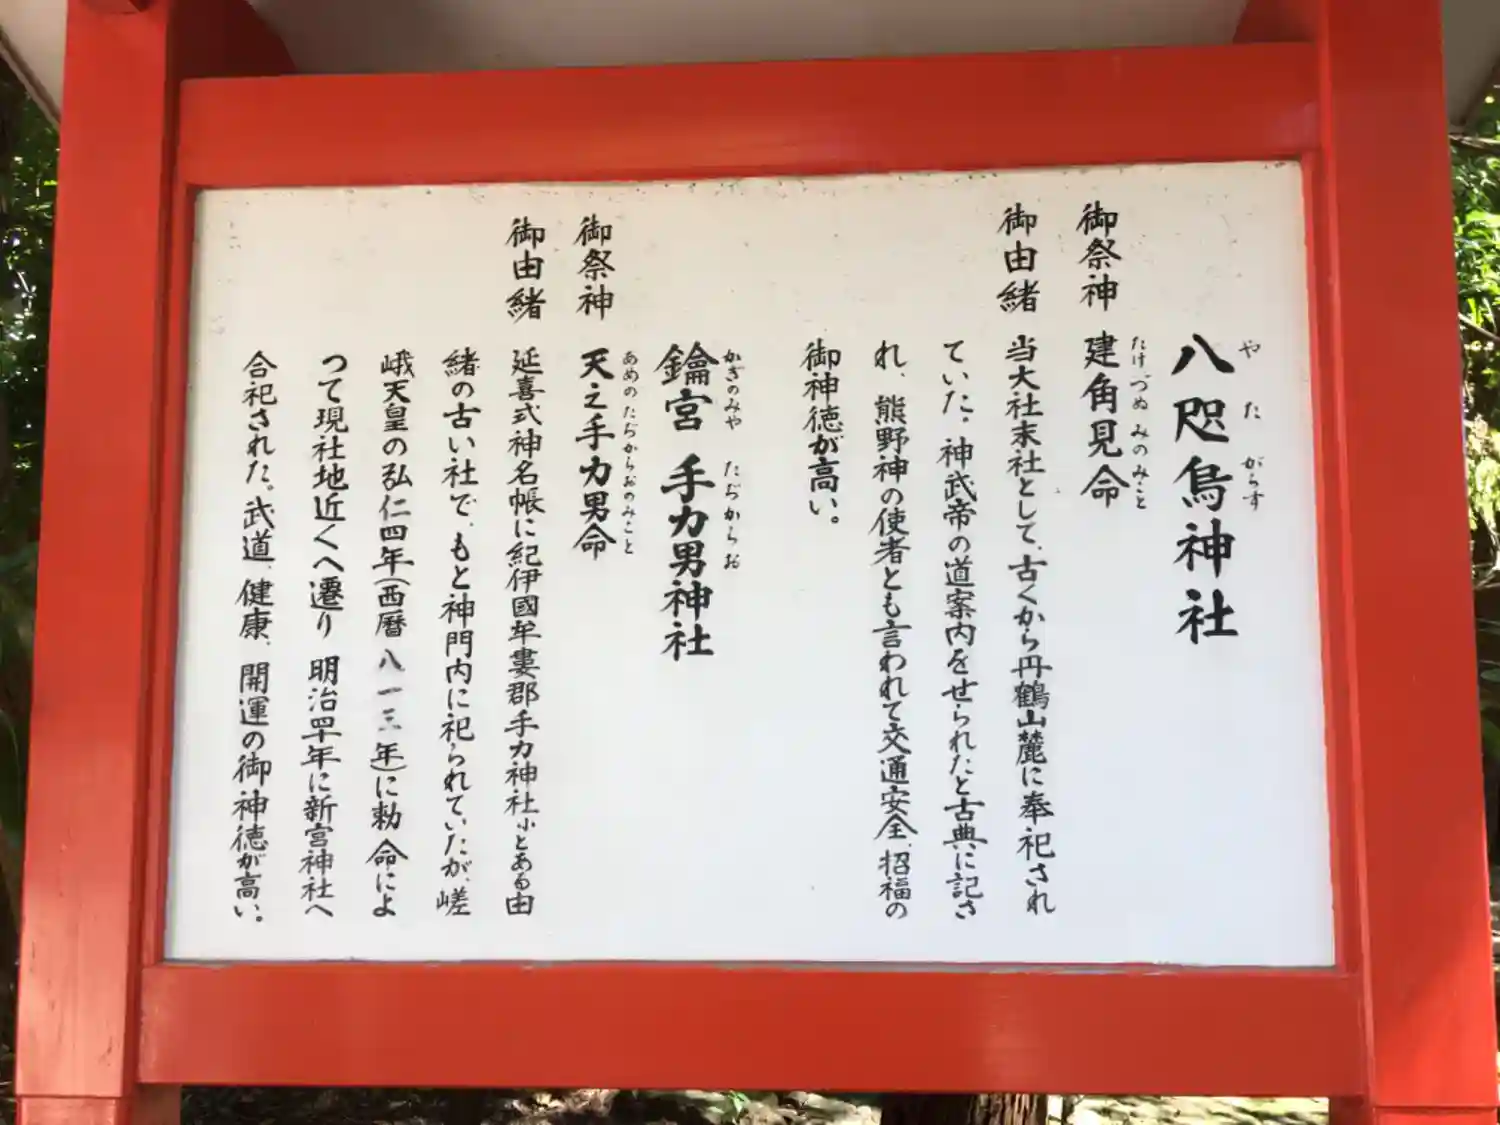 八咫烏神社
やたがらす
御祭神 建角見命
たけづぬみのみこと
御由緒 当大社末社として、古くから丹鶴山麓に奉祀され
ていた。神武帝の道案内をせられたと古典に記さ
れ、熊野神の使者とも言われて交通安全、招福の
御神徳が高い。
鑰宮 手力男神社
かぎのみや たぢからお
御祭神 天之手力男命
あめのたぢからおのみこと
御由緒 延喜式神名帳に紀伊國牟婁郡手力神社小とある由
緒の古い社で、もと神門内に祀られていたが、嵯
峨天皇の弘仁四年(西暦八一三年)に勅命によ
つて現社地近くへ遷り 明治四十年に新宮神社へ
合祀された。武道、健康、開運の御神徳が高い。